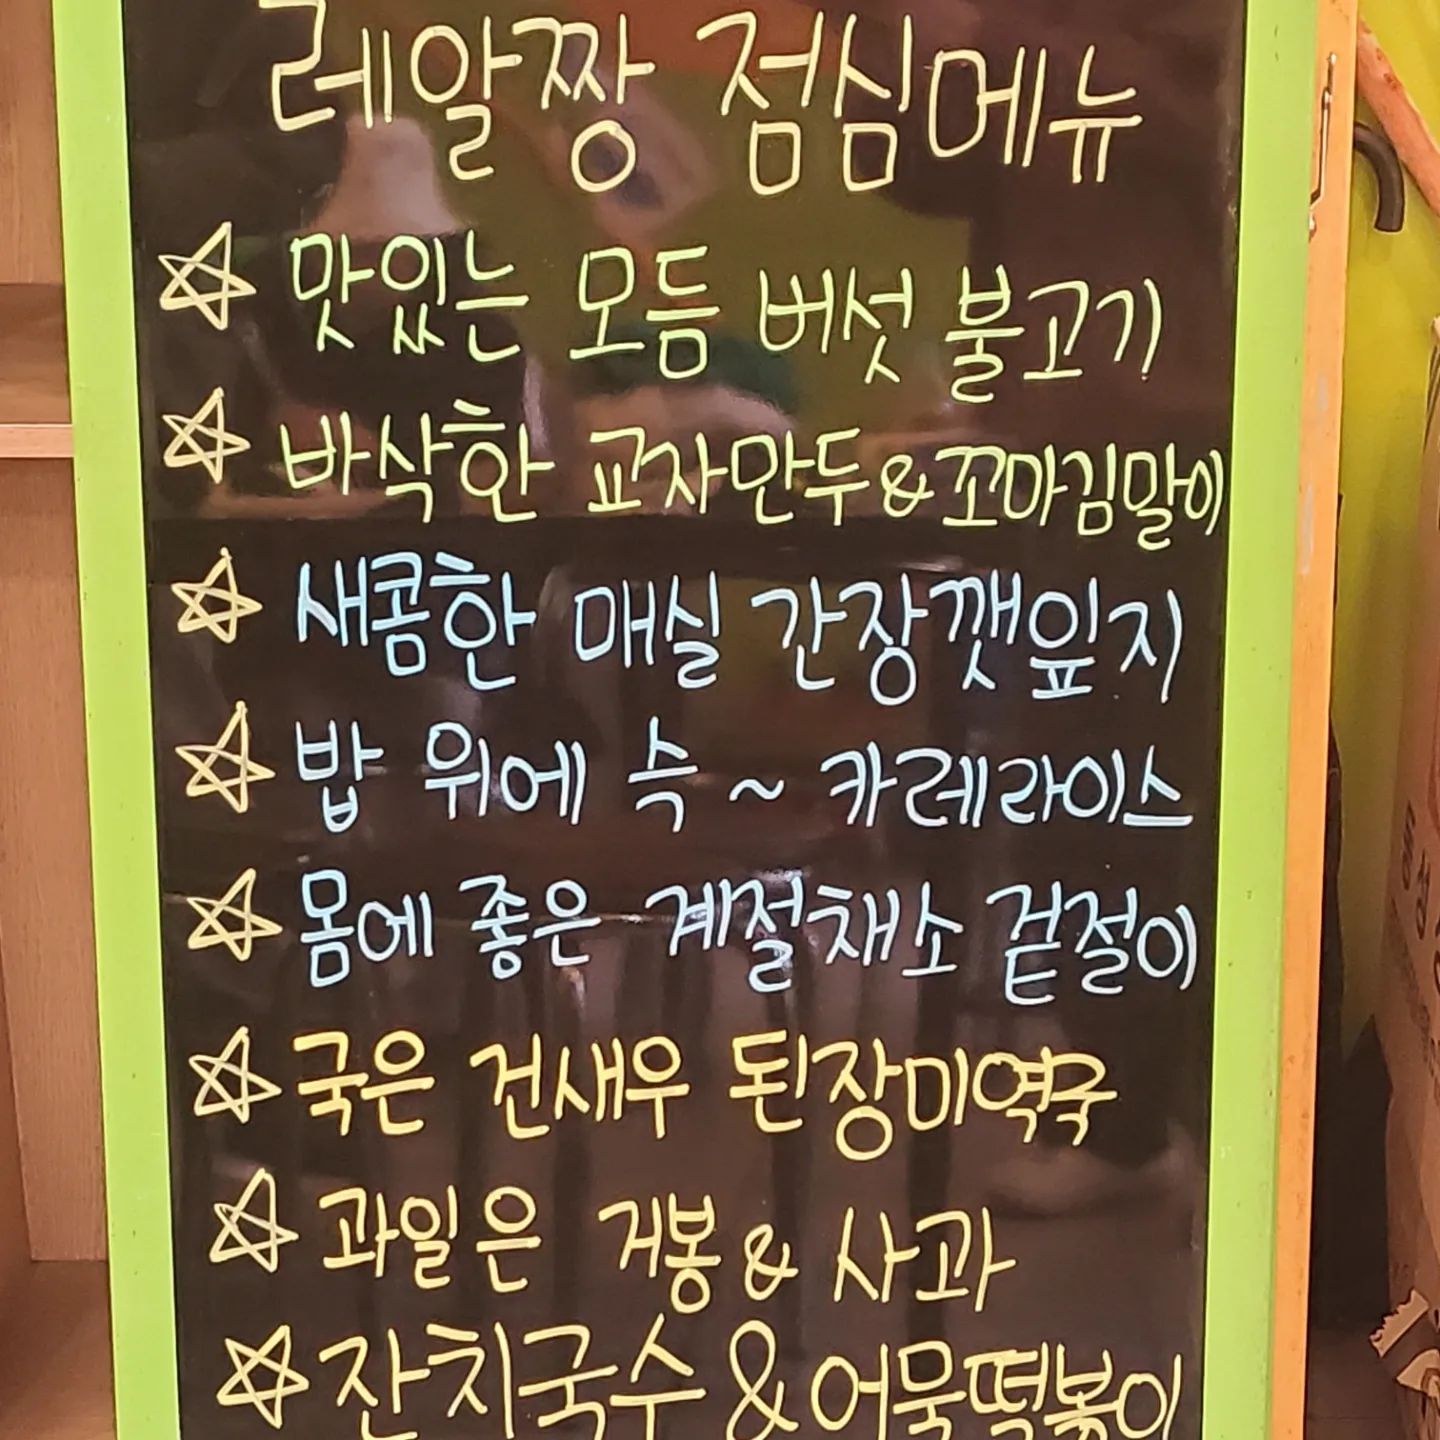 레알짱 점심메뉴
☆ 맛있는 모듬 버섯 불고기
☆ 바삭한 교자만두&꼬마김말이
☆ 새콤한 매실 간장깻잎지
☆ 밥 위에 슥~ 카레라이스
☆ 몸에 좋은 계절채소 겉절이
☆ 국은 건새우 된장미역국
☆ 과일은 거봉 & 사과
☆ 잔치국수 & 어묵떡볶이